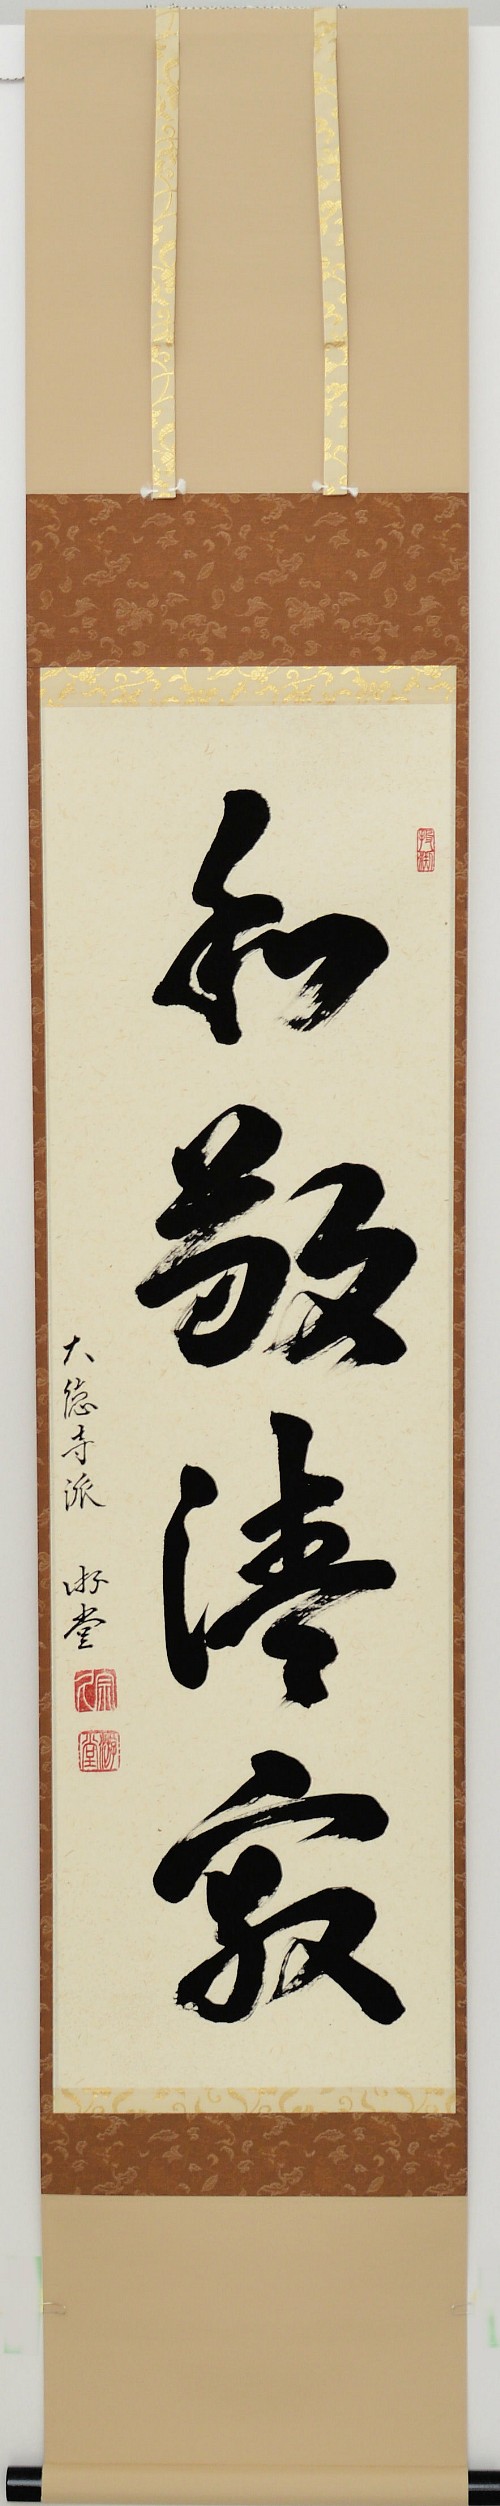 和敬清寂
大徳寺派